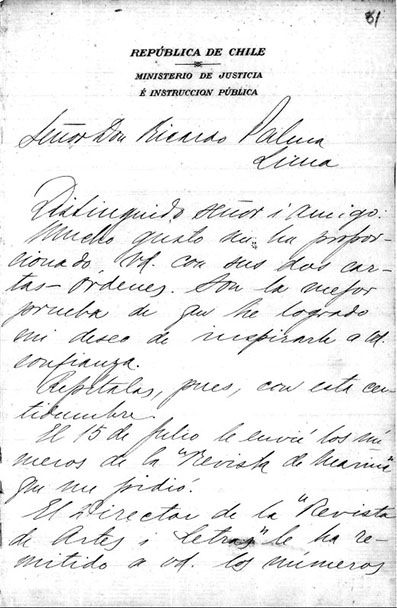 31
REPÚBLICA DE CHILE
MINISTERIO DE JUSTICIA
É INSTRUCCION PÚBLICA
Señor Don Ricardo Palma
Lima
Distinguido señor i amigo:
Mucho gusto me ha propor-
cionado Vd. con sus dos car-
tas-órdenes. Son la mejor
prueba de que he logrado
mi deseo de inspirarle a Vd.
confianza.
Repítalas, pues, con esta cer-
tidumbre.
El 15 de Julio le envié los nú-
meros de la "Revista de Marina"
que me pidió.
El Director de la "Revista
de Artes i Letras" le ha re-
mitido a vd. los números